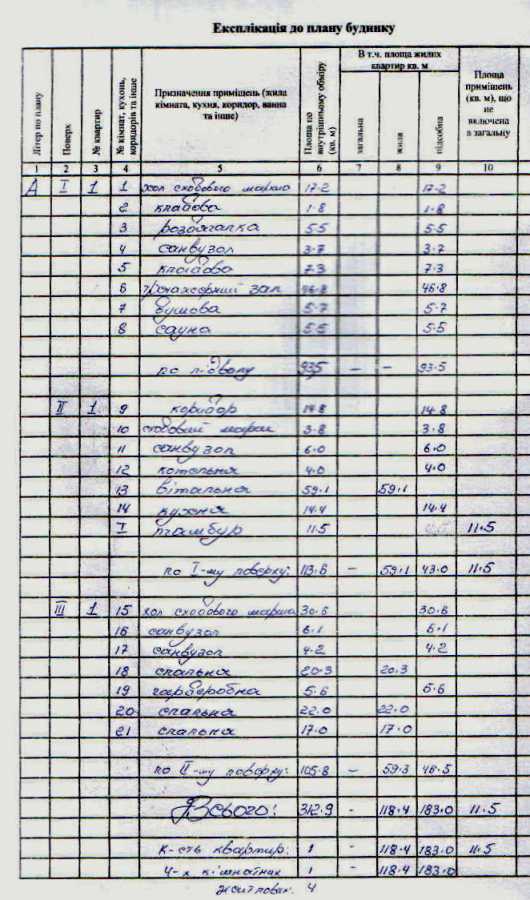 Експлікація до плану будинку
Літер по плану | Поверх | № квартир | № кімнат, кухонь, коридорів та інше | Призначення приміщень (жила кімната, кухня, коридор, ванна та інше) | Площа по внутрішньому обміру (кв. м) | В т.ч. площа жилих квартир кв. м | загальна | жила | підсобна | Площа приміщень (кв. м), що не включена в загальну
1 2 3 4 5 6 7 8 9 10
А I 1 1 хол сходового маршу 17.2 17.2
2 кладова 1.8 1.8
3 роздягалка 5.5 5.5
4 санвузол 3.7 3.7
5 кладова 7.3 7.3
6 тренажерний зал 46.8 46.8
7 душова 5.7 5.7
8 сауна 5.5 5.5
по підвалу 93.5 – – 93.5
II 1 9 коридор 14.8 14.8
10 сходовий марш 3.8 3.8
11 санвузол 6.0 6.0
12 котельня 4.0 4.0
13 вітальня 59.1 59.1
14 кухня 14.4 14.4
I тамбур 11.5 11.5
по I-му поверху: 113.6 – 59.1 43.0 11.5
III 1 15 хол сходового марша 30.6 30.6
16 санвузол 6.1 6.1
17 санвузол 4.2 4.2
18 спальня 20.3 20.3
19 гардеробна 5.6 5.6
20 спальня 22.0 22.0
21 спальня 17.0 17.0
по II-му поверху: 105.8 – 59.3 46.5
Всього: 312.9 – 118.4 183.0 11.5
к-сть квартир: 1 – 118.4 183.0 11.5
4-х кімнатних 1 – 118.4 183.0
4